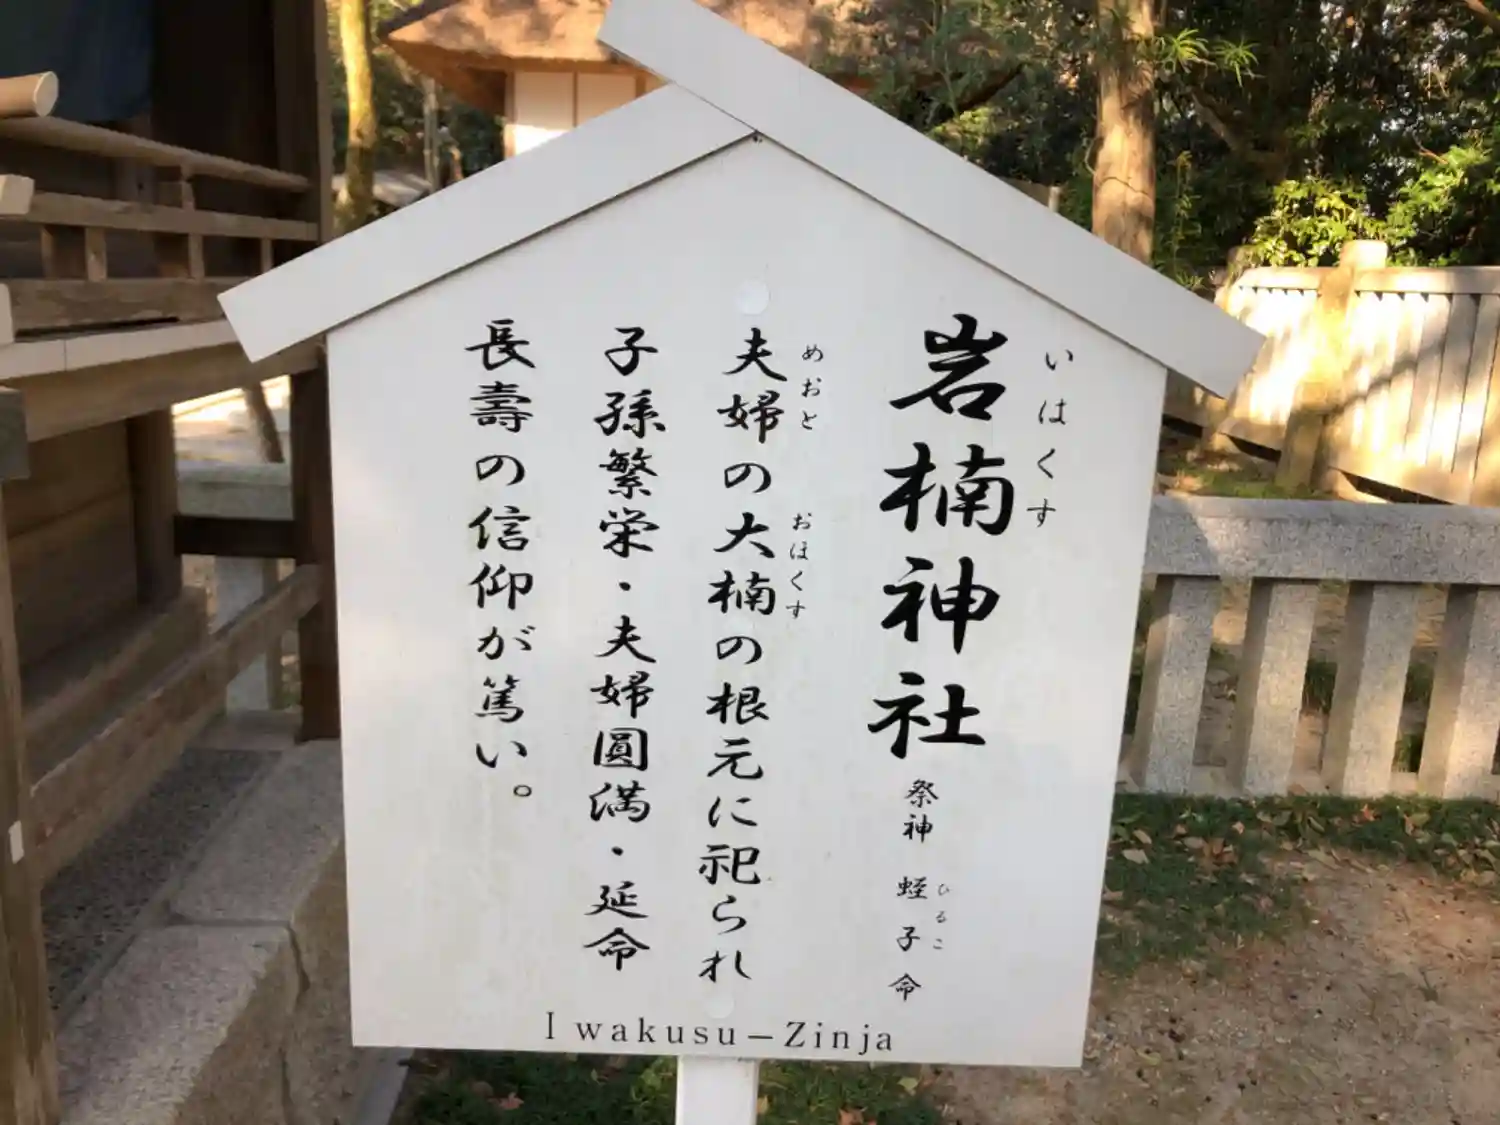 いはくす
岩楠神社 祭神 蛭子命
ひるこ
めおと おほくす
夫婦の大楠の根元に祀られ
子孫繁栄・夫婦圓満・延命
長壽の信仰が篤い。
Iwakusu－Zinja